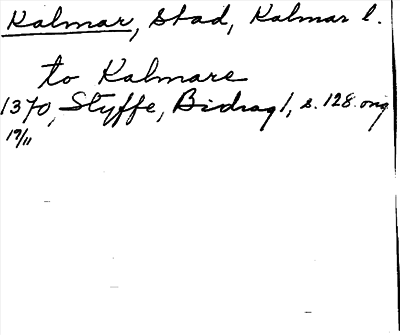 Kalmar, Stad, Kalmar l.
to Kalmare
1370, Styffe, Bidrag 1, s. 128. orig
17/11